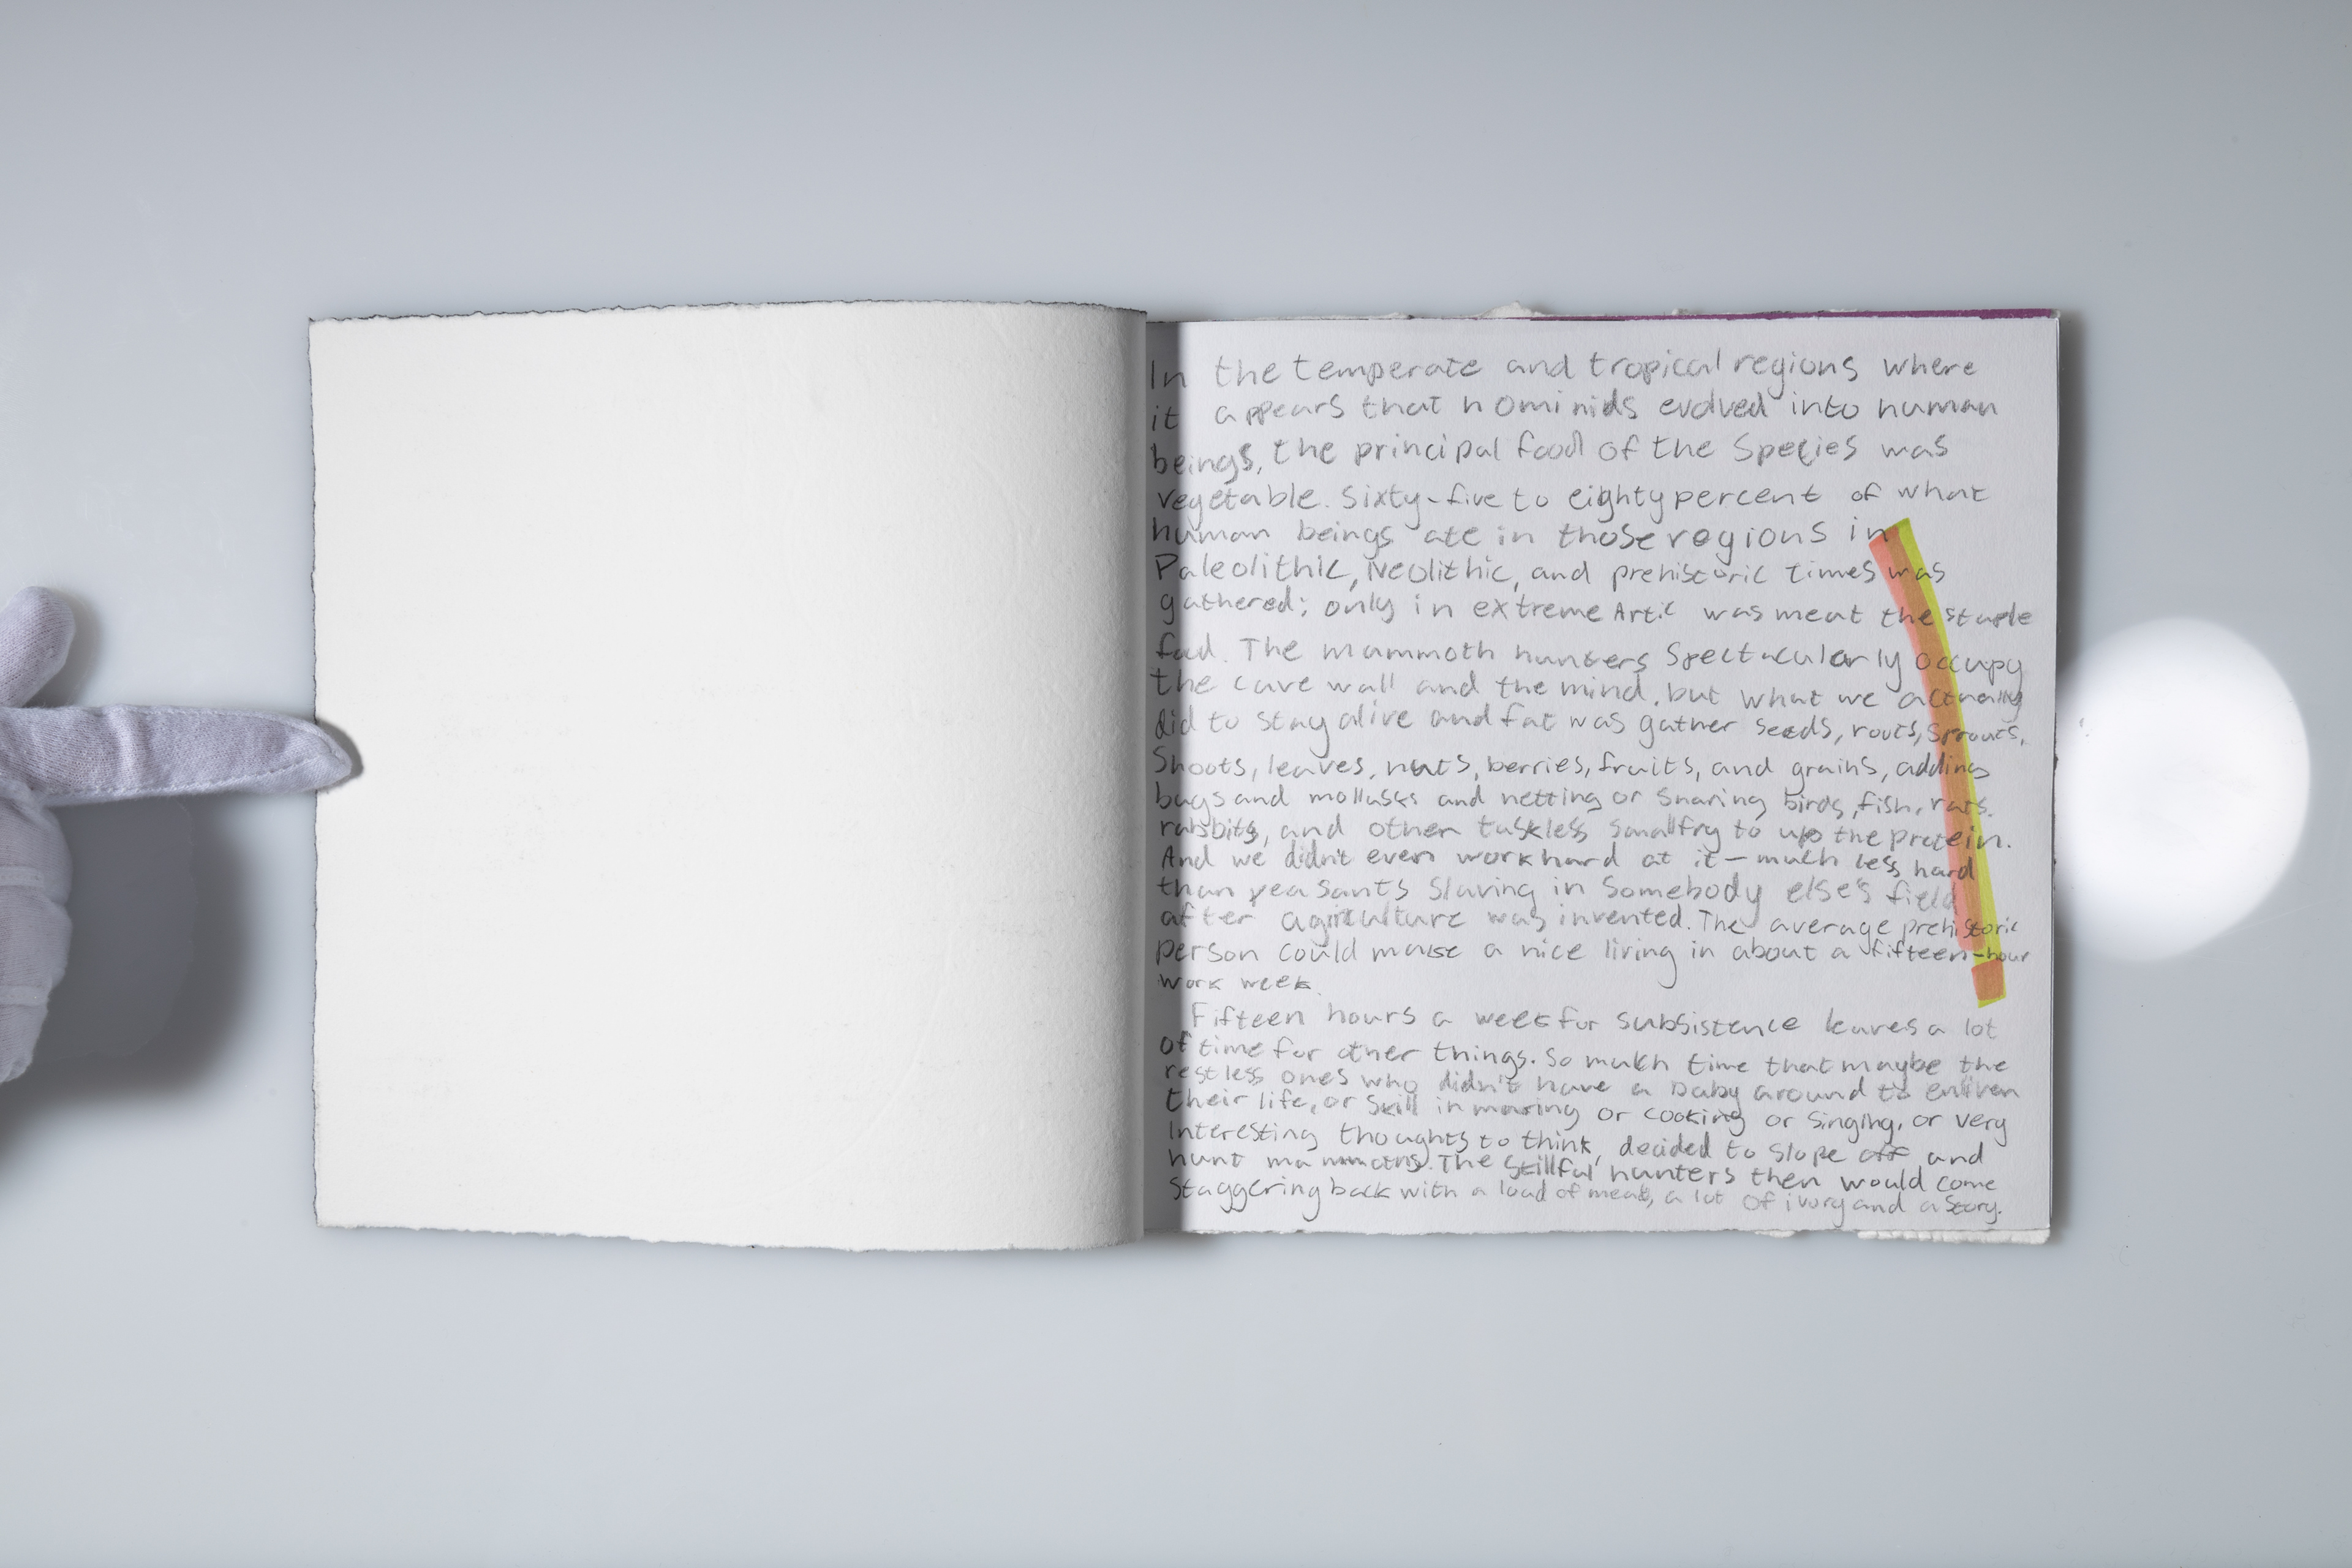 In the temperate and tropical regions where
it appears that hominids evolved into human
beings, the principal food of the species was
vegetable. Sixty-five to eighty percent of what
human beings ate in those regions in
Paleolithic, Neolithic, and prehistoric times was
gathered; only in extreme Artic was meat the staple
food. The mammoth hunters spectacularly occupy
the cave wall and the mind, but what we actually
did to stay alive and fat was gather seeds, roots, sprouts,
shoots, leaves, nuts, berries, fruits, and grains, adding
bugs and mollusks and netting or snaring birds, fish, rats,
rabbits, and other tuskless smallfry to up the protein.
And we didn't even work hard at it — much less hard
than peasants slaving in somebody else's field
after agriculture was invented. The average prehistoric
person could make a nice living in about a fifteen-hour
work week.
Fifteen hours a week for subsistence leaves a lot
of time for other things. So much time that maybe the
restless ones who didn't have a baby around to enliven
their life, or skill in making or cooking or singing, or very
interesting thoughts to think, decided to slope off and
hunt mammoths. The skillful hunters then would come
staggering back with a load of meat, a lot of ivory and a story.